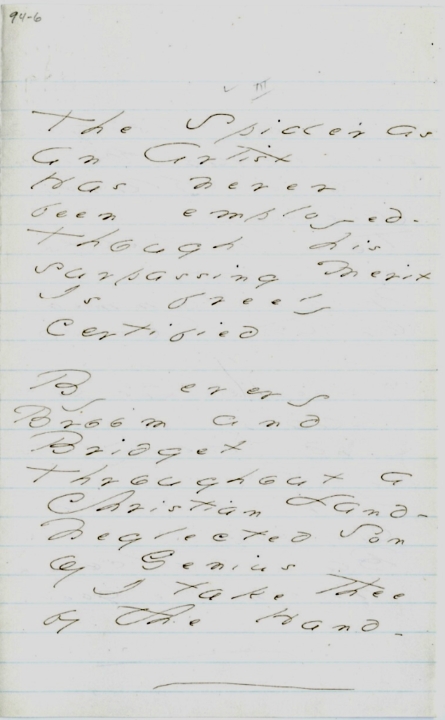 94-6
III
The Spider as
an Artist
Has never
been employed -
Though his
surpassing Merit
Is freely
Certified

By every
Broom and
Bridget
Throughout a
Christian Land -
Neglected Son
of Genius
I take thee
by the Hand -